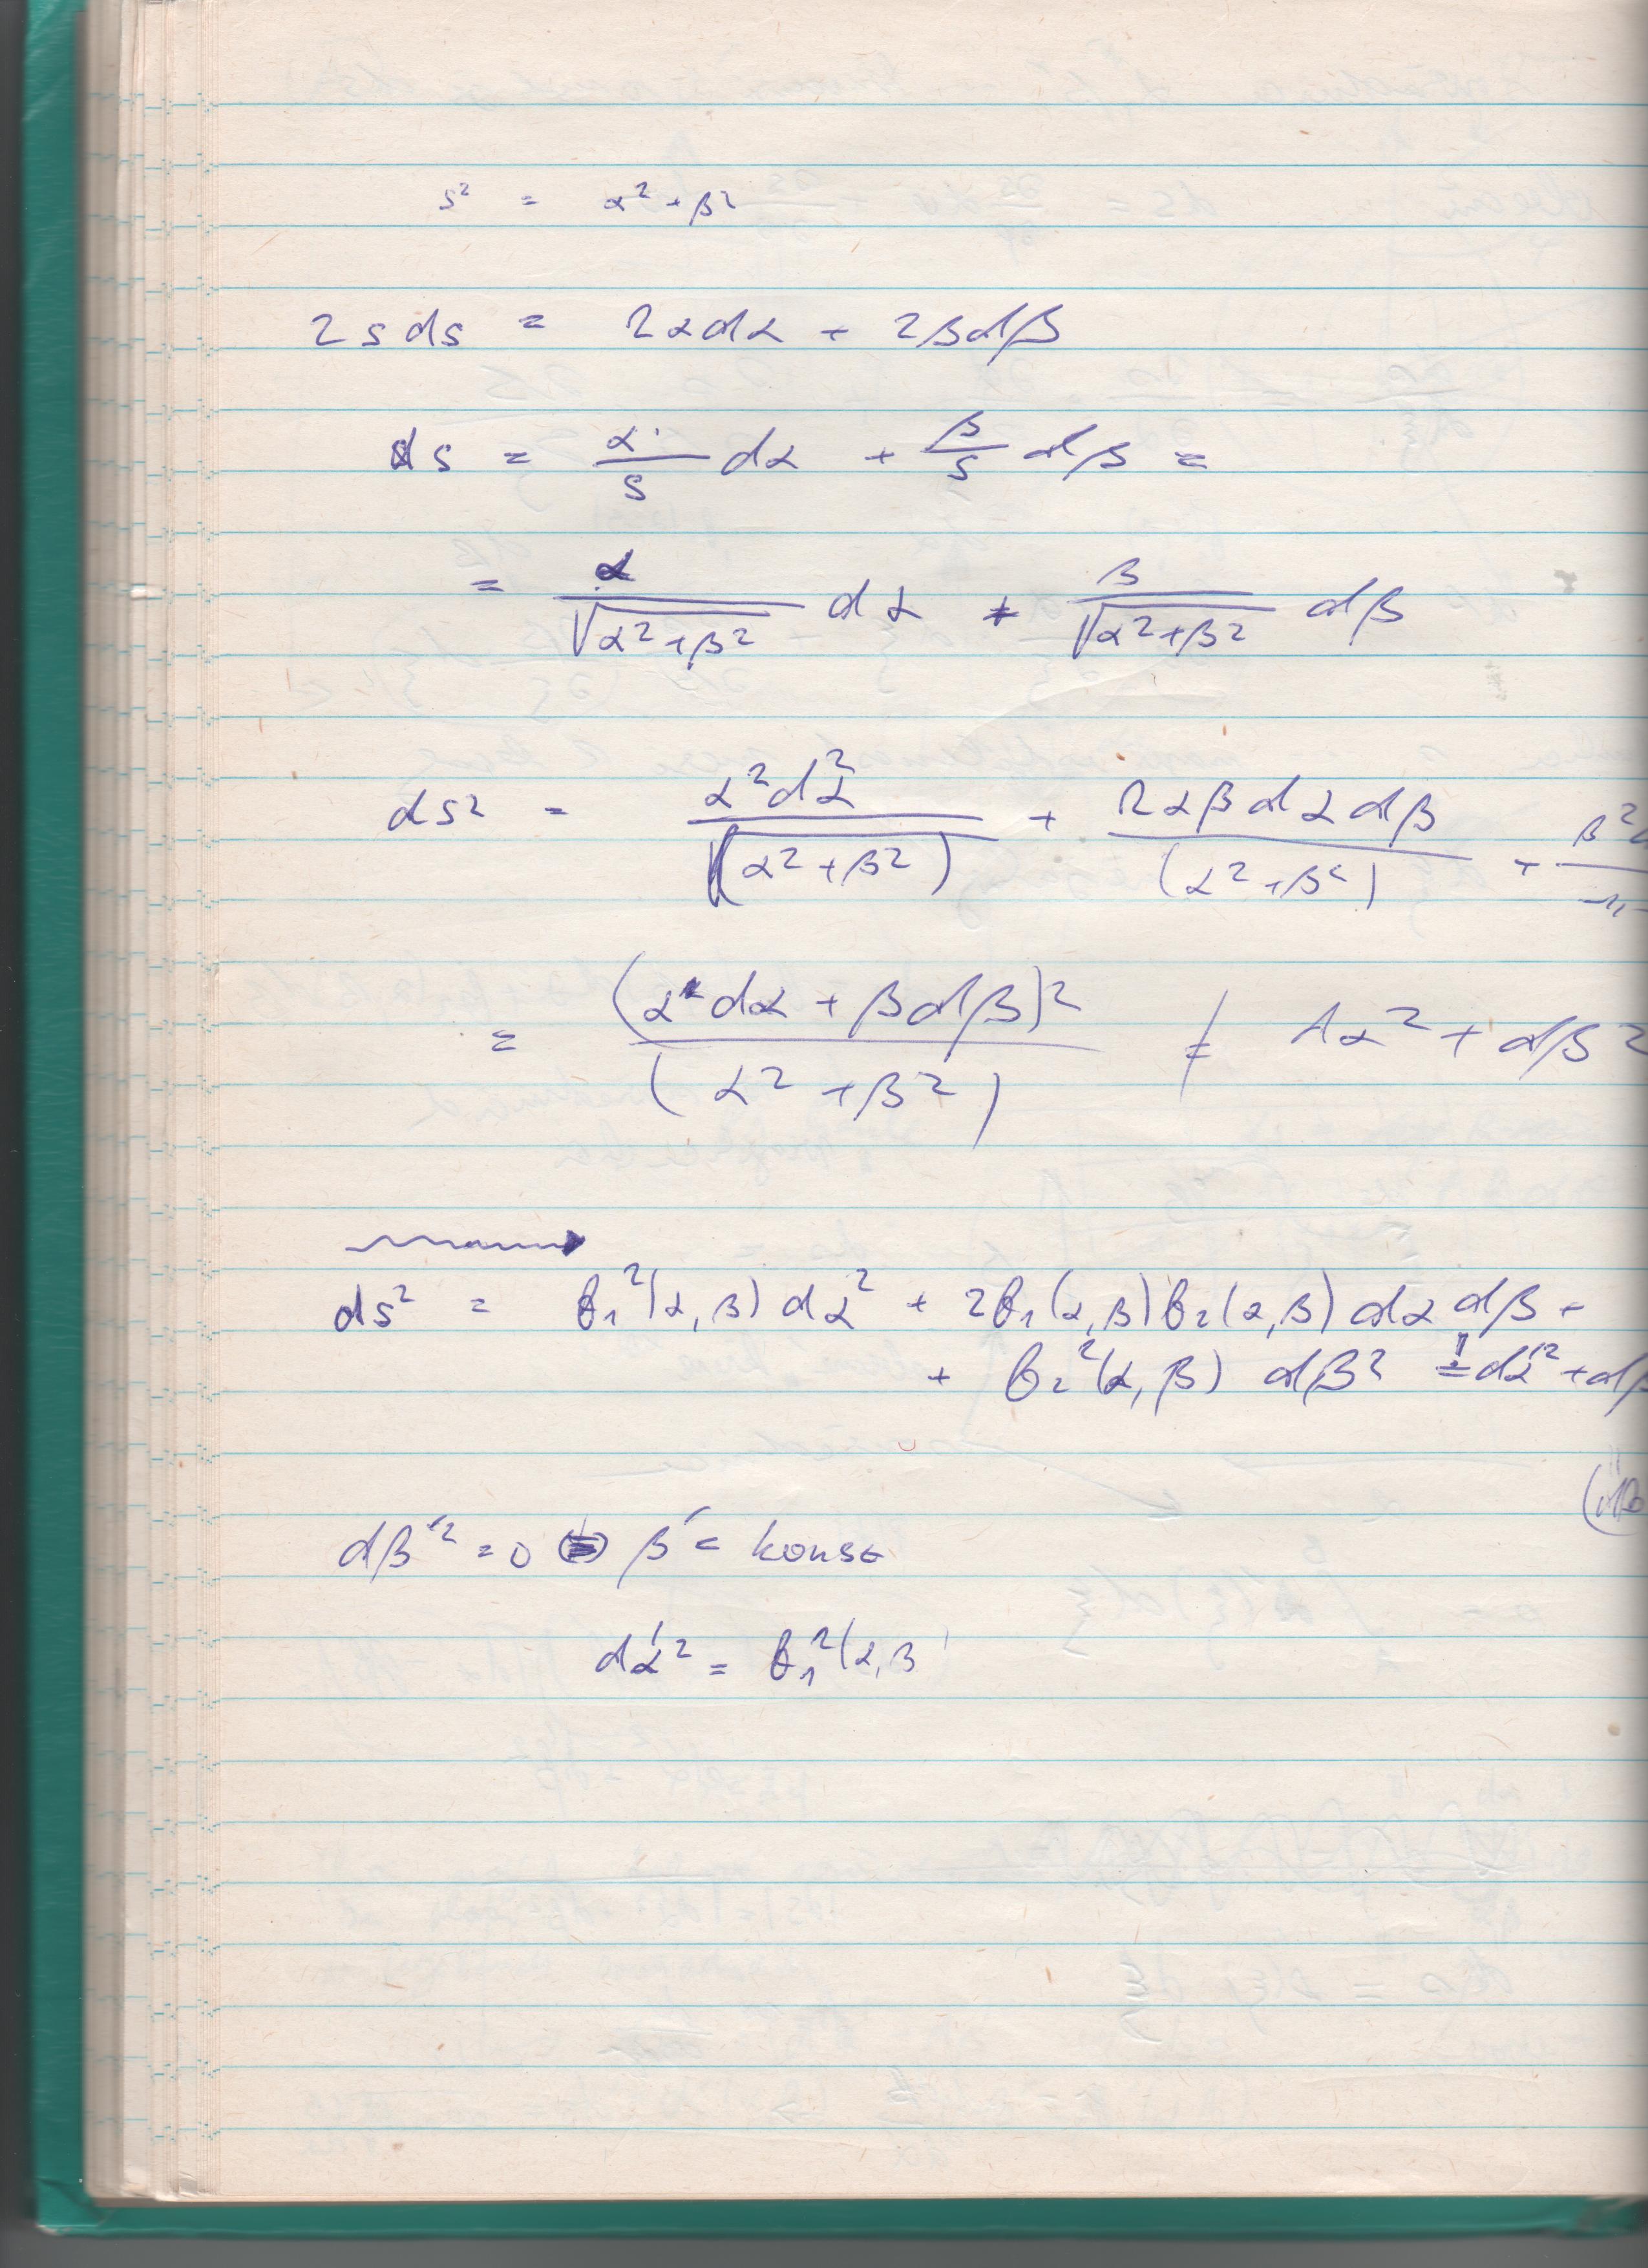 s² = α² + β²
2 s ds = 2αdα + 2βdβ
ds = α/s dα + β/s dβ =
= α/√(α²+β²) dα + β/√(α²+β²) dβ
ds² = α²dα²/(α²+β²) + 2αβdαdβ/(α²+β²) + β²
= (αdα + βdβ)²/(α²+β²) ≠ dα² + dβ²
ds² = f₁²(α,β) dα² + 2f₁(α,β)f₂(α,β) dα dβ +
+ f₂²(α,β) dβ² = dα'² + dβ
dβ'² = 0 ⇔ β' = konst
dα'² = f₁²(α,β